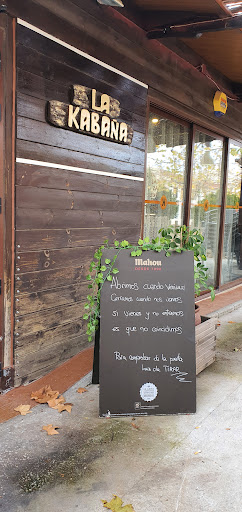 LA
KABANA
Mahou
DESDE 1890
Abrimos cuando venimos
Cerramos cuando nos vamos
si vienes y no estamos
es que no coincidimos
Para comprobar di la puerta
hay de TIRAR